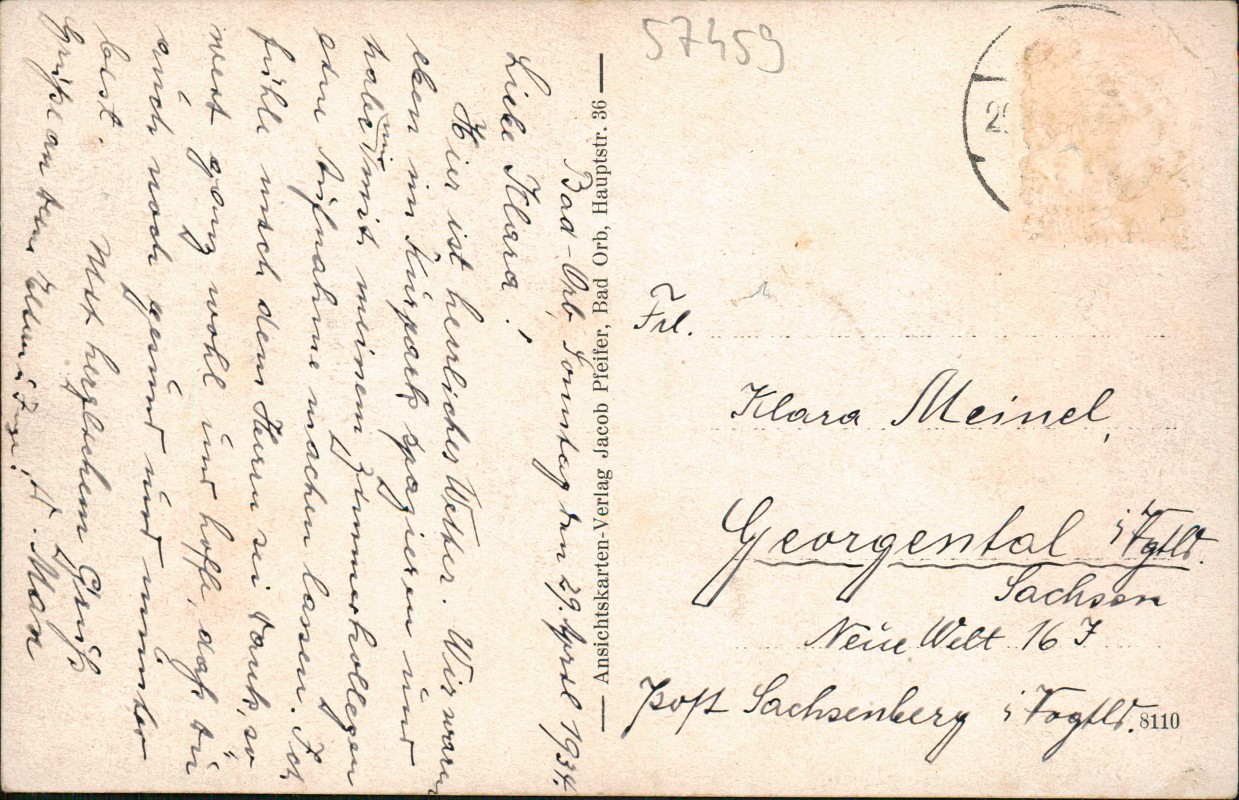 57459
29
Bad-Orb, Sonntag den 29. April 1934.
Liebe Klara!
Hier ist herrliches Wetter. Wir waren
eben im Kurpark spazieren und
habe mir mit meinem Zimmerkollegen
eine Aufnahme machen lassen. Ich
fühle mich dem Herrn sei Dank, so
weit ganz wohl und hoffe, daß du
auch noch gesund und munter
bist. Mit herzlichem Gruß
Grüße an deine Eltern u. A. Man
Ansichtskarten-Verlag Jacob Pfeifer, Bad Orb, Hauptstr. 36
Frl.
Klara Meinel,
Georgental i/Vgtld.
Sachsen
Neue Welt 16 J
Post Sachsenberg i/Vogtld.
8110